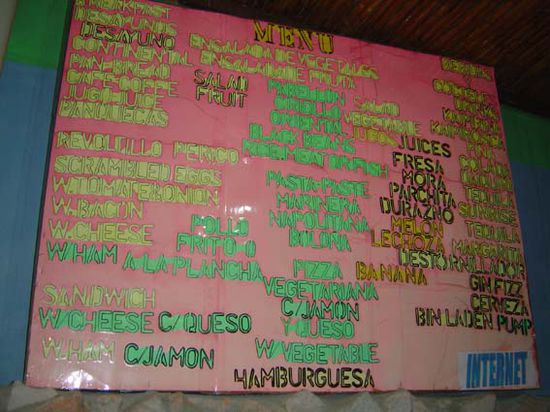 MENU
BREAKFAST
DESAYUNOS
DESAYUNO
CONTINENTAL
PAN-BREAD
CAFE-COFFE
JUGO-JUICE
PANQUECAS
REVOLTILLO PERICO
SCRAMBLED EGGS
W.TOMATE ONION
W.BACON
W.CHEESE
W/HAM
SANDWICH
W/CHEESE C/QUESO
W.HAM C/JAMON
ENSALADA DE VEGETALES
ENSALADA DE FRUTA
SALAD
FRUIT
POLLO
FRITO-O
A-LA-PLANCHA
PABELLON
CRIOLLO
ORIENTAL
BLACK BEANS
RICE MEAT OR FISH
PASTA-PASTE
MARINERA
NAPOLITANA
BOLOÑA
PIZZA
VEGETARIANA
C/JAMON
Y QUESO
W/VEGETABLE
HAMBURGUESA
SALAD
VEGETABLE
JUGOS
JUICES
FRESA
MORA
PARCHITA
DURAZNO
MELON
LECHOZA
BANANA
COLADA
TEQUILA
SUNRISE
TEQUILA
MARGARITA
DESTORNILLADOR
GIN FIZZ
CERVEZA
BIN LADEN PUMP
INTERNET